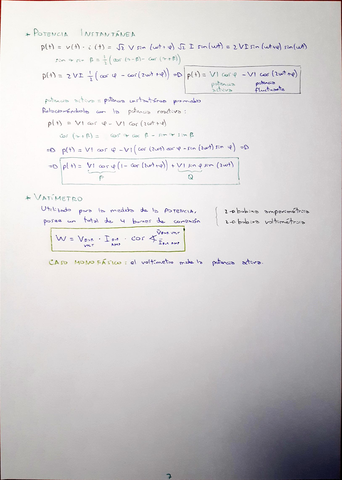 → POTENCIA INSTANTÁNEA
p(t) = v(t) · i(t) = √2 V sin(ωt+φ) √2 I sin(ωt) = 2VI sin(ωt+φ) sin(ωt)
sin α sin B = ½(cos(α-B) - cos(α+B))
p(t) = 2VI ½(cos φ - cos(2ωt+φ)) ⇒ p(t) = VI cos φ - VI cos(2ωt+φ)
potencia activa potencia fluctuante
potencia activa = potencia instantánea promedio
Relacionándolo con la potencia reactiva:
p(t) = VI cos φ - VI cos(2ωt+φ)
cos(α+B) = cos α cos B - sin α sin B
⇒ p(t) = VI cos φ - VI(cos(2ωt) cos φ - sin(2ωt) sin φ) ⇒
⇒ p(t) = VI cos φ(1 - cos(2ωt)) + VI sin φ sin(2ωt)
P Q
→ VATÍMETRO
Utilizado para la medida de la POTENCIA.
posee un total de 4 bornes de conexión
2 → bobina amperimétrica
2 → bobina voltimétrica
W = V · I · cos
CASO MONOFÁSICO: el vatímetro mide la potencia activa.